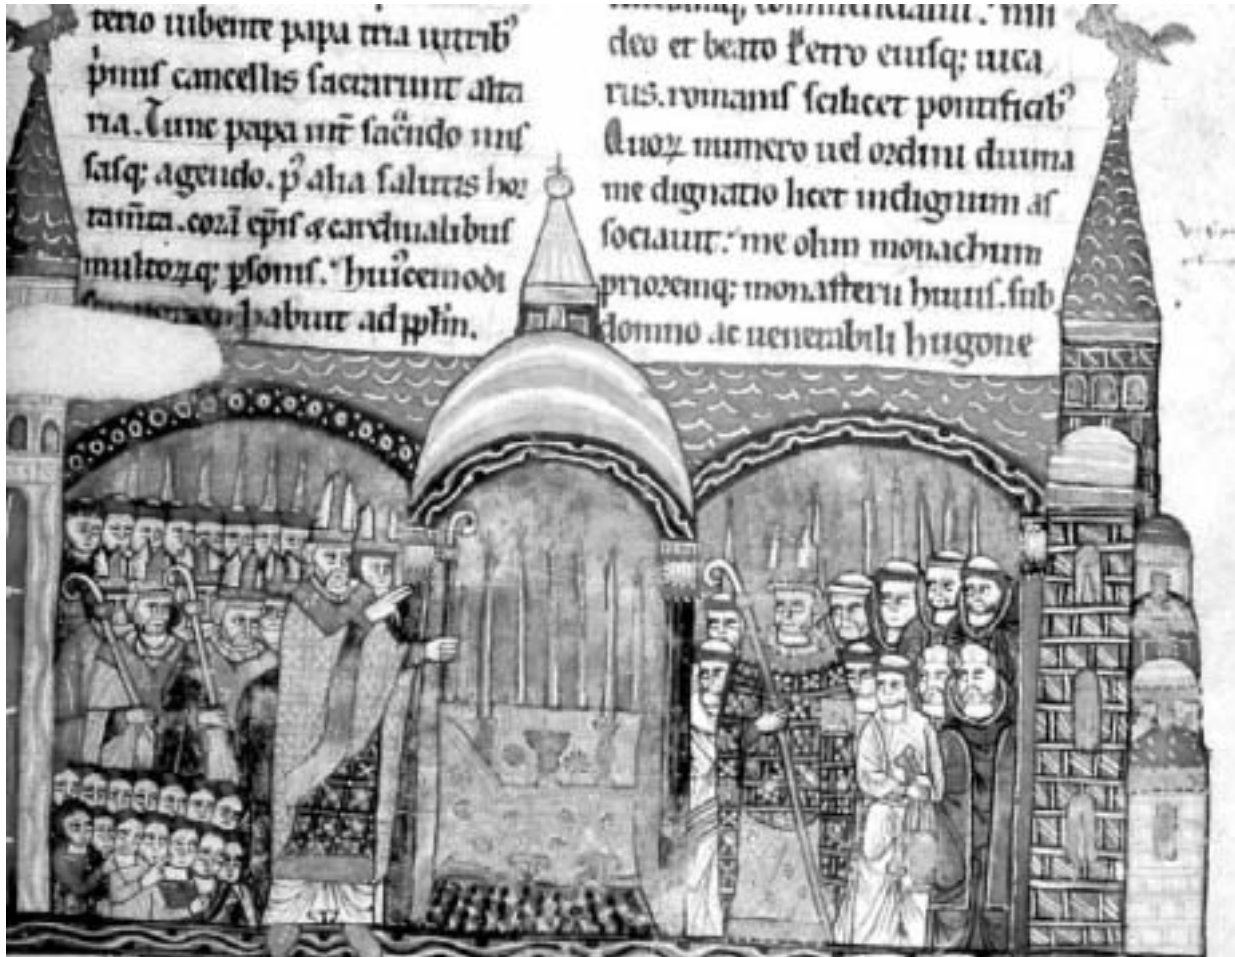 terio iubente papa tria in tribꝰ
p'mis cancellis sacrarunt alta
ria. Tunc papa int̄ sac̄ndo mis
sasq; agendo. pꝰ alia salutis hor
tam̄ta. corā ep̄is & cardinalibus
multorꝝq; p̱sonis. hui'cemodi
habuit ad pp̄lm.
deo et beato Petro eiusq; uica
riis. romanis scilicet pontificibꝰ
Quoꝝ numero uel ordini diuina
me dignatio licet indignum as
sociauit. me olim monachum
prioremq; monasterii huius. sub
domno ac uenerabili hugone